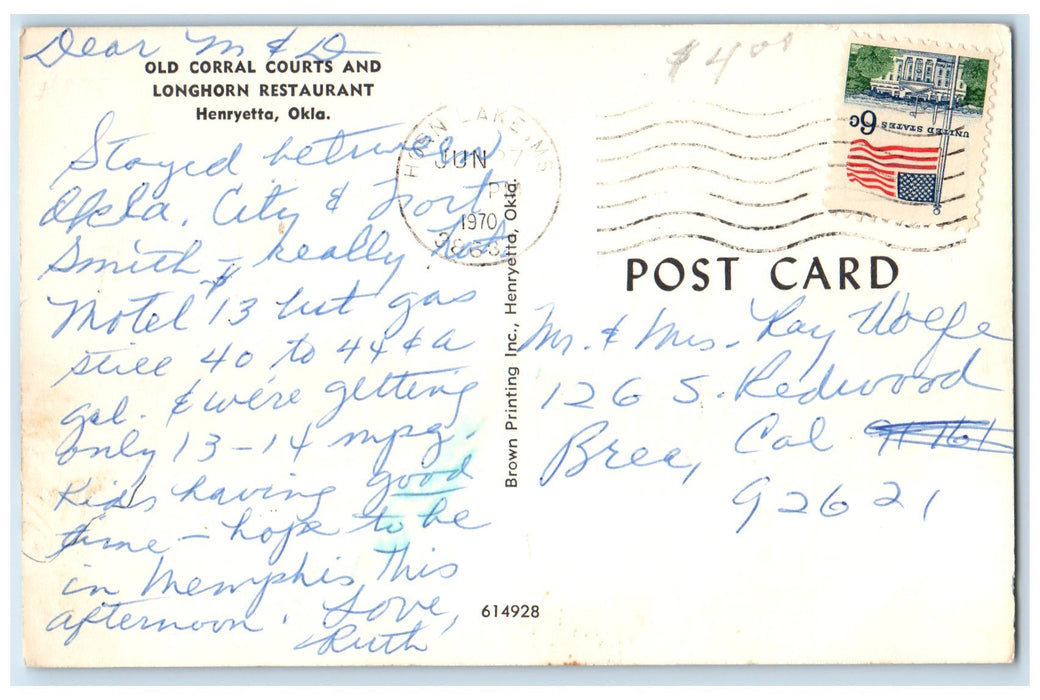 Dear M & D
OLD CORRAL COURTS AND
LONGHORN RESTAURANT
Henryetta, Okla.
Stayed between
Okla. City & Fort
Smith – really hot
Motel $13 but gas
still 40 to 44¢ a
gal. & we're getting
only 13-14 mpg.
Kids having good
time – hope to be
in Memphis this
afternoon. Love,
Ruth
HORN LAKE, MS
JUN 27
PM
1970
Brown Printing Inc., Henryetta, Okla.
614928
$4.00
UNITED STATES
6c
POST CARD
Mr. & Mrs. Ray Wolfe
126 S. Redwood
Brea, Cal
92621